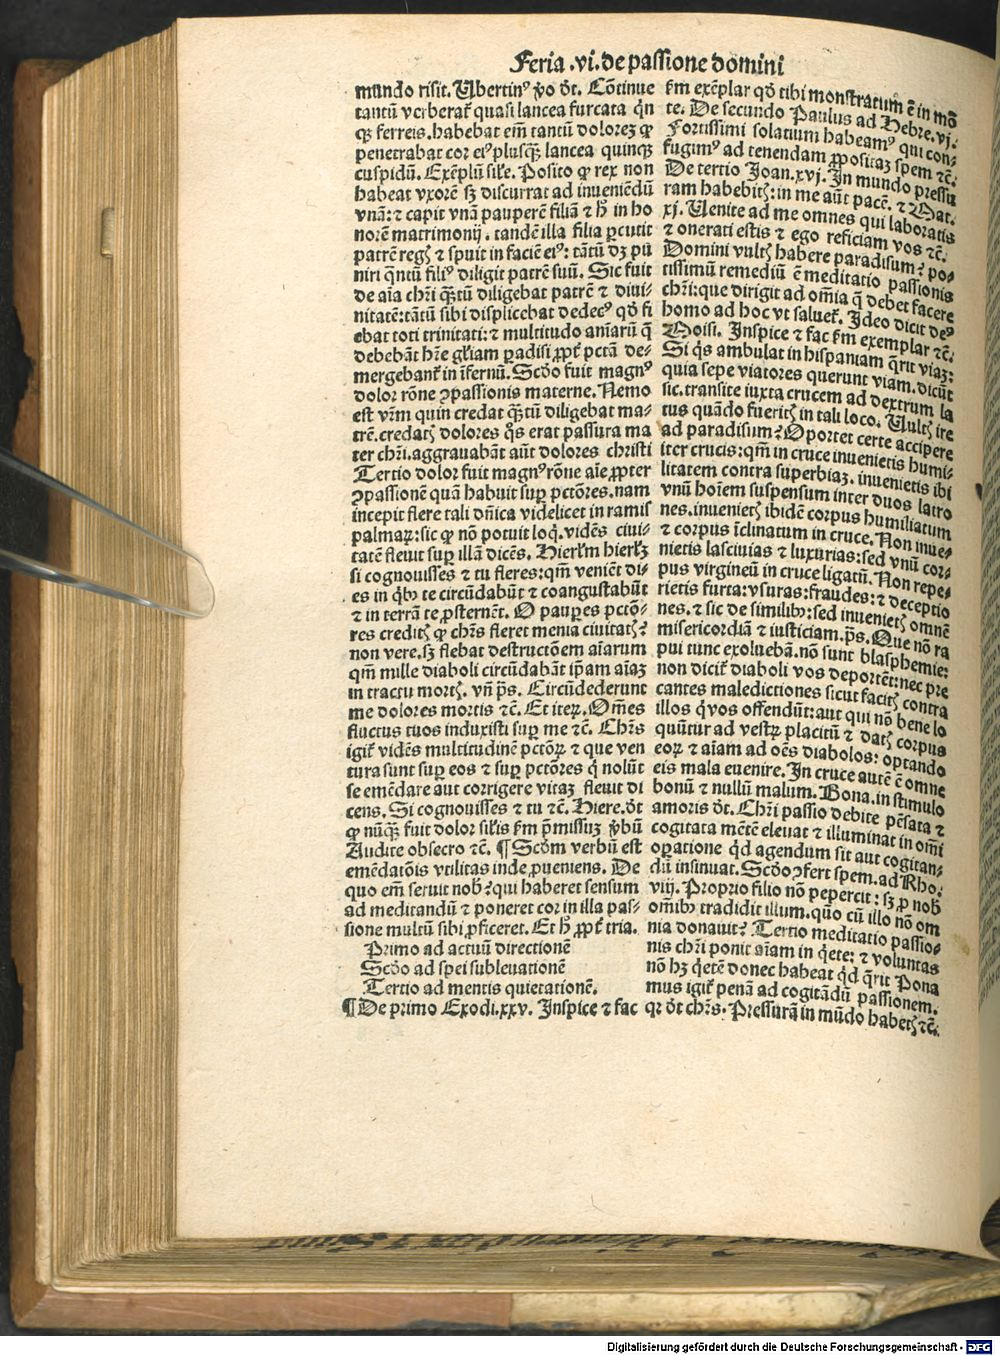 Feria .vi. de passione domini
mundo risit. Ubertinꝰ ꝟo dt̄. Cōtinue
tantū verberat̄ quasi lancea furcata qͥn
qꝫ ferreis. habebat em̄ tantū dolorez ꝙ
penetrabat cor eiꝰ plusqꝫ̄ lancea quinqꝫ
cuspidū. Exēplū sil̄e. Posito ꝙ rex non
habeat vxorē sꝫ discurrat ad inueniēdū
vnā: ⁊ capit vnā pauperē filiā ⁊ hͨ in ho
norē matrimonij. tandē illa filia ꝑcutit
patrē regꝭ ⁊ spuit in faciē eiꝰ: tātū dꝫ pu
niri qͣntū filiꝰ diligit patrē suū. Sic fuit
de aīa chr̄i qꝫ̄tū diligebat patrē ⁊ diui-
nitatē: tātū sibi displicebat dedecꝰ qd̄ fi
ebat toti trinitati: ⁊ multitudo aīarū q̄
debebāt hr̄e gl̄iam ꝑadisi ꝓpt̄ pctā de-
mergebant̄ in īfernū. Scd̄o fuit magnꝰ
dolor rōne ꝯpassionis materne. Nemo
est vr̄m quin credat qꝫ̄tū diligebat ma-
trē. credatꝭ dolores qͦs erat passura ma
ter chr̄i. aggrauabāt aūt dolores christi
Tertio dolor fuit magnꝰ rōne aīe ꝓpter
ꝯpassionē quā habuit suꝑ pctōres. nam
incepit flere tali dn̄ica videlicet in ramis
palmaꝝ: sic ꝙ nō potuit loqͥ. vidēs ciui-
tatē fleuit suꝑ illā dicēs. Hierl̄m hierl̄ꝫ
si cognouisses ⁊ tu fleres: qm̄ veniēt di-
es in qͥbꝰ te circūdabūt ⁊ coangustabūt
⁊ in terrā te ꝓsternēt. O pauꝑes pctō-
res creditꝭ ꝙ chr̄s fleret menia ciuitatꝭ?
non vere. sꝫ flebat destructōem aīarum
qm̄ mille diaboli circūdabāt ip̄am aīaꝫ
in tractu mortꝭ. vn̄ ps̄. Circūdederunt
me dolores mortis ⁊c̄. Et iteꝝ. Om̄es
fluctus tuos induxisti suꝑ me ⁊c̄. Chr̄s
igit̄ vidēs multitudinē pctōꝝ ⁊ que ven
tura sunt suꝑ eos ⁊ suꝑ pctōres qͥ nolūt
se emēdare aut corrigere vitaꝫ fleuit di
cens. Si cognouisses ⁊ tu ⁊c̄. Hiere. dt̄
ꝙ nūqꝫ̄ fuit dolor sil̄is ẜm p̄missuꝫ ꝟbū
Audite obsecro ⁊c̄. ¶ Scd̄m verbū est
emēdatōis vtilitas inde ꝓueniens. De
quo em̄ seruit nobꝭ? qui haberet sensum
ad meditandū ⁊ poneret cor in illa pas-
sione multū sibi ꝓficeret. Et hͨ ꝓpt̄ tria.
Primo ad actuū directionē
Scd̄o ad spei subleuationē
Tertio ad mentis quietationē.
¶ De primo Exodi. xxv. Inspice ⁊ fac
ẜm exēplar qd̄ tibi monstratum ē in mō
te. De secundo Paulus ad Hebre. vj.
Fortissimi solatium habeamꝰ qui con-
fugimꝰ ad tenendam ꝓpositaꝫ spem ⁊c̄.
De tertio Joan. xvj. In mundo pressu
ram habebitꝭ: in me aūt pacē. ⁊ Mat.
xj. Uenite ad me omnes qui laboratis
⁊ onerati estis ⁊ ego reficiam vos ⁊c̄.
Domini vultꝭ habere paradisum? po-
tissimū remediū ē meditatio passionis
chr̄i: que dirigit ad om̄ia q̄ debet facere
homo ad hoc vt saluet̄. Ideo dicit deꝰ
Moisi. Inspice ⁊ fac ẜm exemplar ⁊c̄.
Si qͥs ambulat in hispaniam q̄rit viaꝫ:
quia sepe viatores querunt viam. dicūt
sic. transite iuxta crucem ad dextrum la
tus quādo fueritꝭ in tali loco. Uultꝭ ire
ad paradisum? Oportet certe accipere
iter crucis: qm̄ in cruce inuenietis humi-
litatem contra superbiaꝫ. inuenietis ibi
vnū hoīem suspensum inter duos latro
nes. inuenietꝭ ibidē corpus humiliatum
⁊ corpus īclinatum in cruce. Non inue-
nietis lasciuias ⁊ luxurias: sed vnū cor-
pus virgineū in cruce ligatū. Non repe-
rietis furta: vsuras: fraudes: ⁊ deceptio
nes. ⁊ sic de similibꝰ: sed inuenietꝭ omnē
misericordiā ⁊ iusticiam. ps̄. Que nō ra
pui tunc exoluebā. nō sunt blasphemie:
non dicit̄ diaboli vos deportēt: nec pre
cantes maledictiones sicut facitꝭ contra
illos qͥ vos offendūt: aut qui nō bene lo
quūtur ad vestꝝ placitū ⁊ datꝭ corpus
eoꝝ ⁊ aīam ad oēs diabolos: optando
eis mala euenire. In cruce autē ē omne
bonū ⁊ nullū malum. Bona. in stimulo
amoris dt̄. Chr̄i passio debite pēsata ⁊
cogitata mētē eleuat ⁊ illuminat in om̄i
oꝑatione qͥd agendum sit aut cogitan-
dū insinuat. Scd̄o ꝯfert spem. ad Rho.
viij. Proprio filio nō pepercit: sꝫ ꝓ nobꝭ
om̄ibꝰ tradidit illum. quō cū illo nō om
nia donauit? Tertio meditatio passio-
nis chr̄i ponit aīam in qͥete: ⁊ voluntas
nō hꝫ qͥetē donec habeat qͥd q̄rit Pona
mus igit̄ penā ad cogitādū passionem.
qꝛ dt̄ chr̄s. Pressurā in mūdo habetꝭ ⁊c̄.
Digitalisierung gefördert durch die Deutsche Forschungsgemeinschaft - DFG